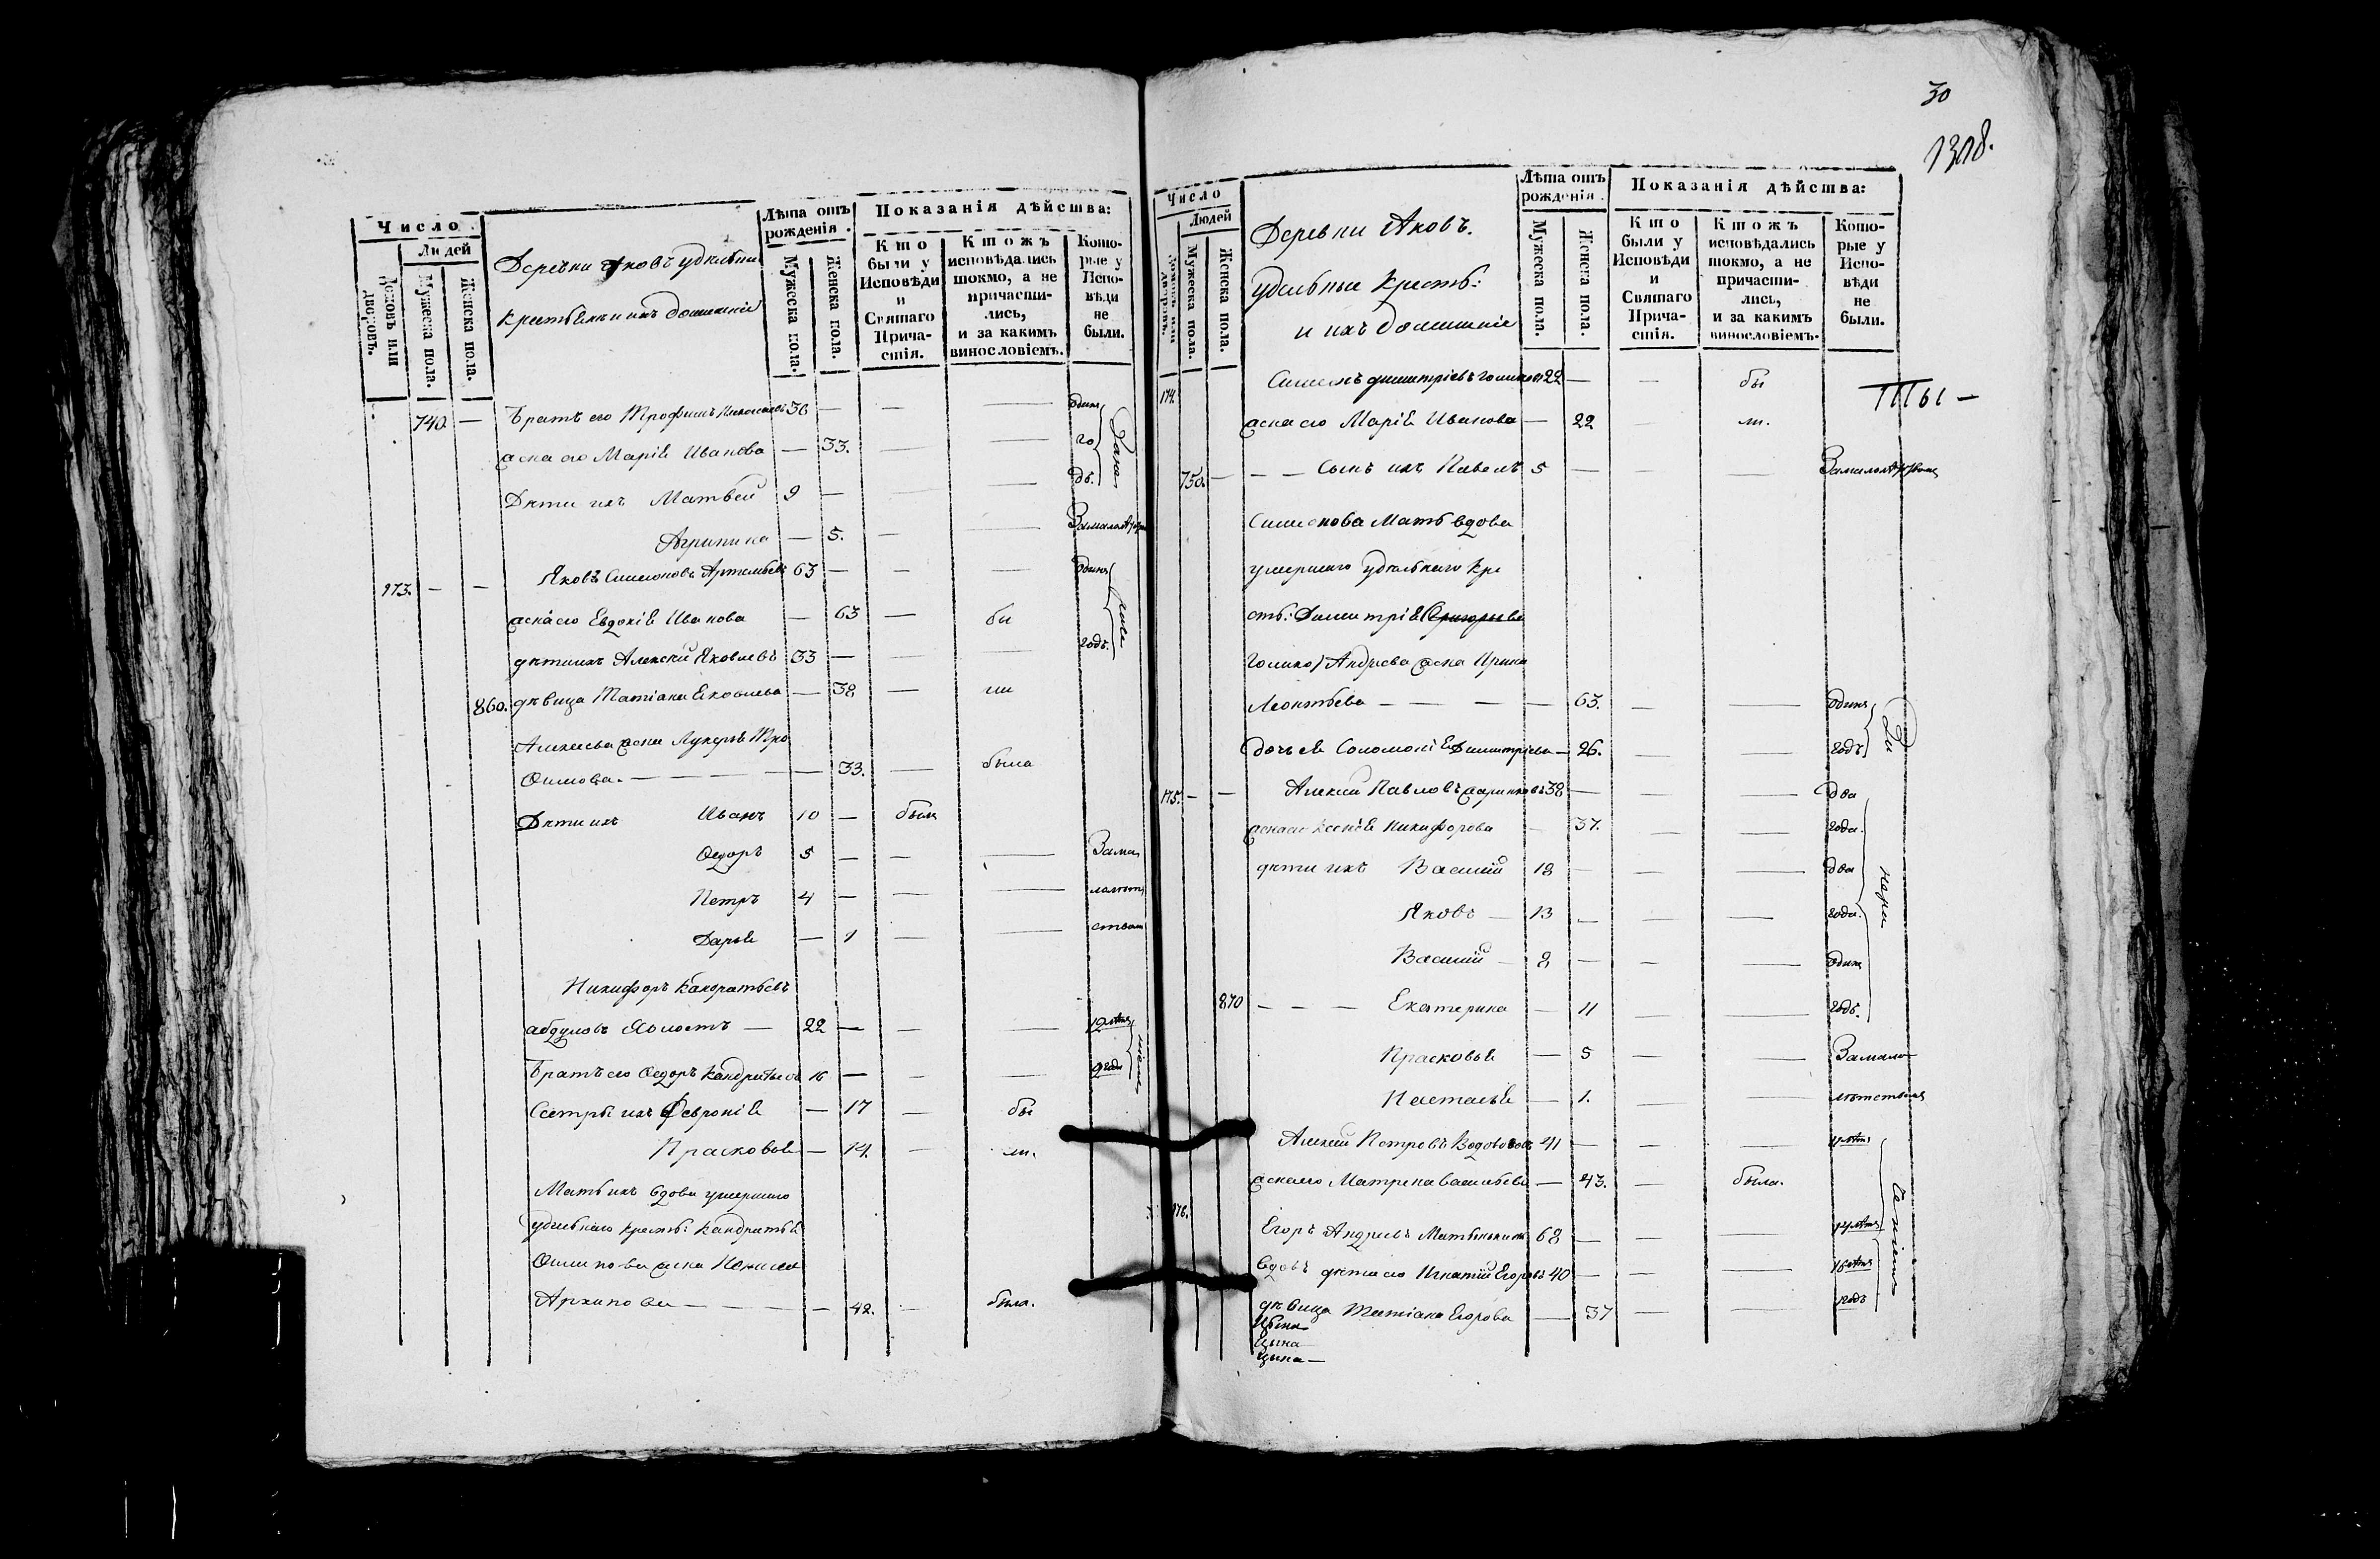 Число
Людей
Домовъ или дворовъ.
Мужеска пола.
Женска пола.
Деревни Яковъ удѣльныи
крестьяне и ихъ домашніе
Лѣта отъ рожденія.
Мужеска пола.
Женска пола.
Показанія дѣйства:
Кто были у Исповѣди и Святаго Причастія.
Ктожъ исповѣдались токмо, а не причастились, и за какимъ винословіемъ.
Которые у Исповѣди не были.
740. — Братъ его Трофимъ 36 — — — одинъ
жена его Марія Иванова — 33. — — го
Дѣти ихъ Матвей 9 — — — дъ.
Агрипина — 5. — —
173. — — Яковъ Симеоновъ Артемьевъ 63 — — — одинъ
жена его Евдокія Иванова — 63 — бы
дѣти ихъ Алексей Яковлевъ 33 — — — годъ.
860. дѣвица Татіана Яковлева — 38 — ли
Алексеева жена Лукерья Тро
Фимова. — — — — — 33. — была
Дѣти ихъ Иванъ 10 — былъ
Ѳедоръ 5 — — — Зама
Петръ 4 — — — лолѣт
Дарья — 1 — — ством
Никифоръ Кандратьевъ
абдуловъ холостъ — 22 — — —
Братъ его Ѳедоръ Кандратьевъ 16 — — —
Сестры ихъ Февронія — 17 — бы
Прасковья — 14. — ли.
Мать ихъ вдова умершаго
удѣльнаго крестъ: Кандратья
жена
Архипова — — — — 42. — была.
30
1318.
Число
Людей
Домовъ или дворовъ.
Мужеска пола.
Женска пола.
Деревни Яковъ.
удѣльные крестъ:
и ихъ домашніе
Лѣта отъ рожденія.
Мужеска пола.
Женска пола.
Показанія дѣйства:
Кто были у Исповѣди и Святаго Причастія.
Ктожъ исповѣдались токмо, а не причастились, и за какимъ винословіемъ.
Которые у Исповѣди не были.
174. Симеонъ Димитріевъ 22 — — бы
жена его Марія Иванова — 22 — ли.
750. — — — Сынъ ихъ Павелъ 5 — — —
Симеонова Мать вдова
умершаго удѣльнаго кре
стъ: Димитрія Григорьева
Андреева жена Ирина
Леонтьева — — — — 63. — — одинъ
дочь ея Соломонія Димитріева — 26. — — годъ
175. — — Алексей Павловъ 38 — — — два
жена его Ксенія Никифорова — 37. — — года.
дѣти ихъ Василій 18 — — — два
Яковъ — 13 — — — года.
Василій — 8 — — — одинъ
870 — — — Екатерина — 11 — — годъ.
Прасковья — 5 — — Замало
Настасья — 1. — — лѣтством
Алексей Петровъ 41 — — —
жена его Матрена Васильева — 43. — была.
176.
Егоръ Андреевъ 68 — — —
вдовъ дѣти его Игнатій Егоровъ 40 — — —
дѣвица Татіана Егорова — 37 — —